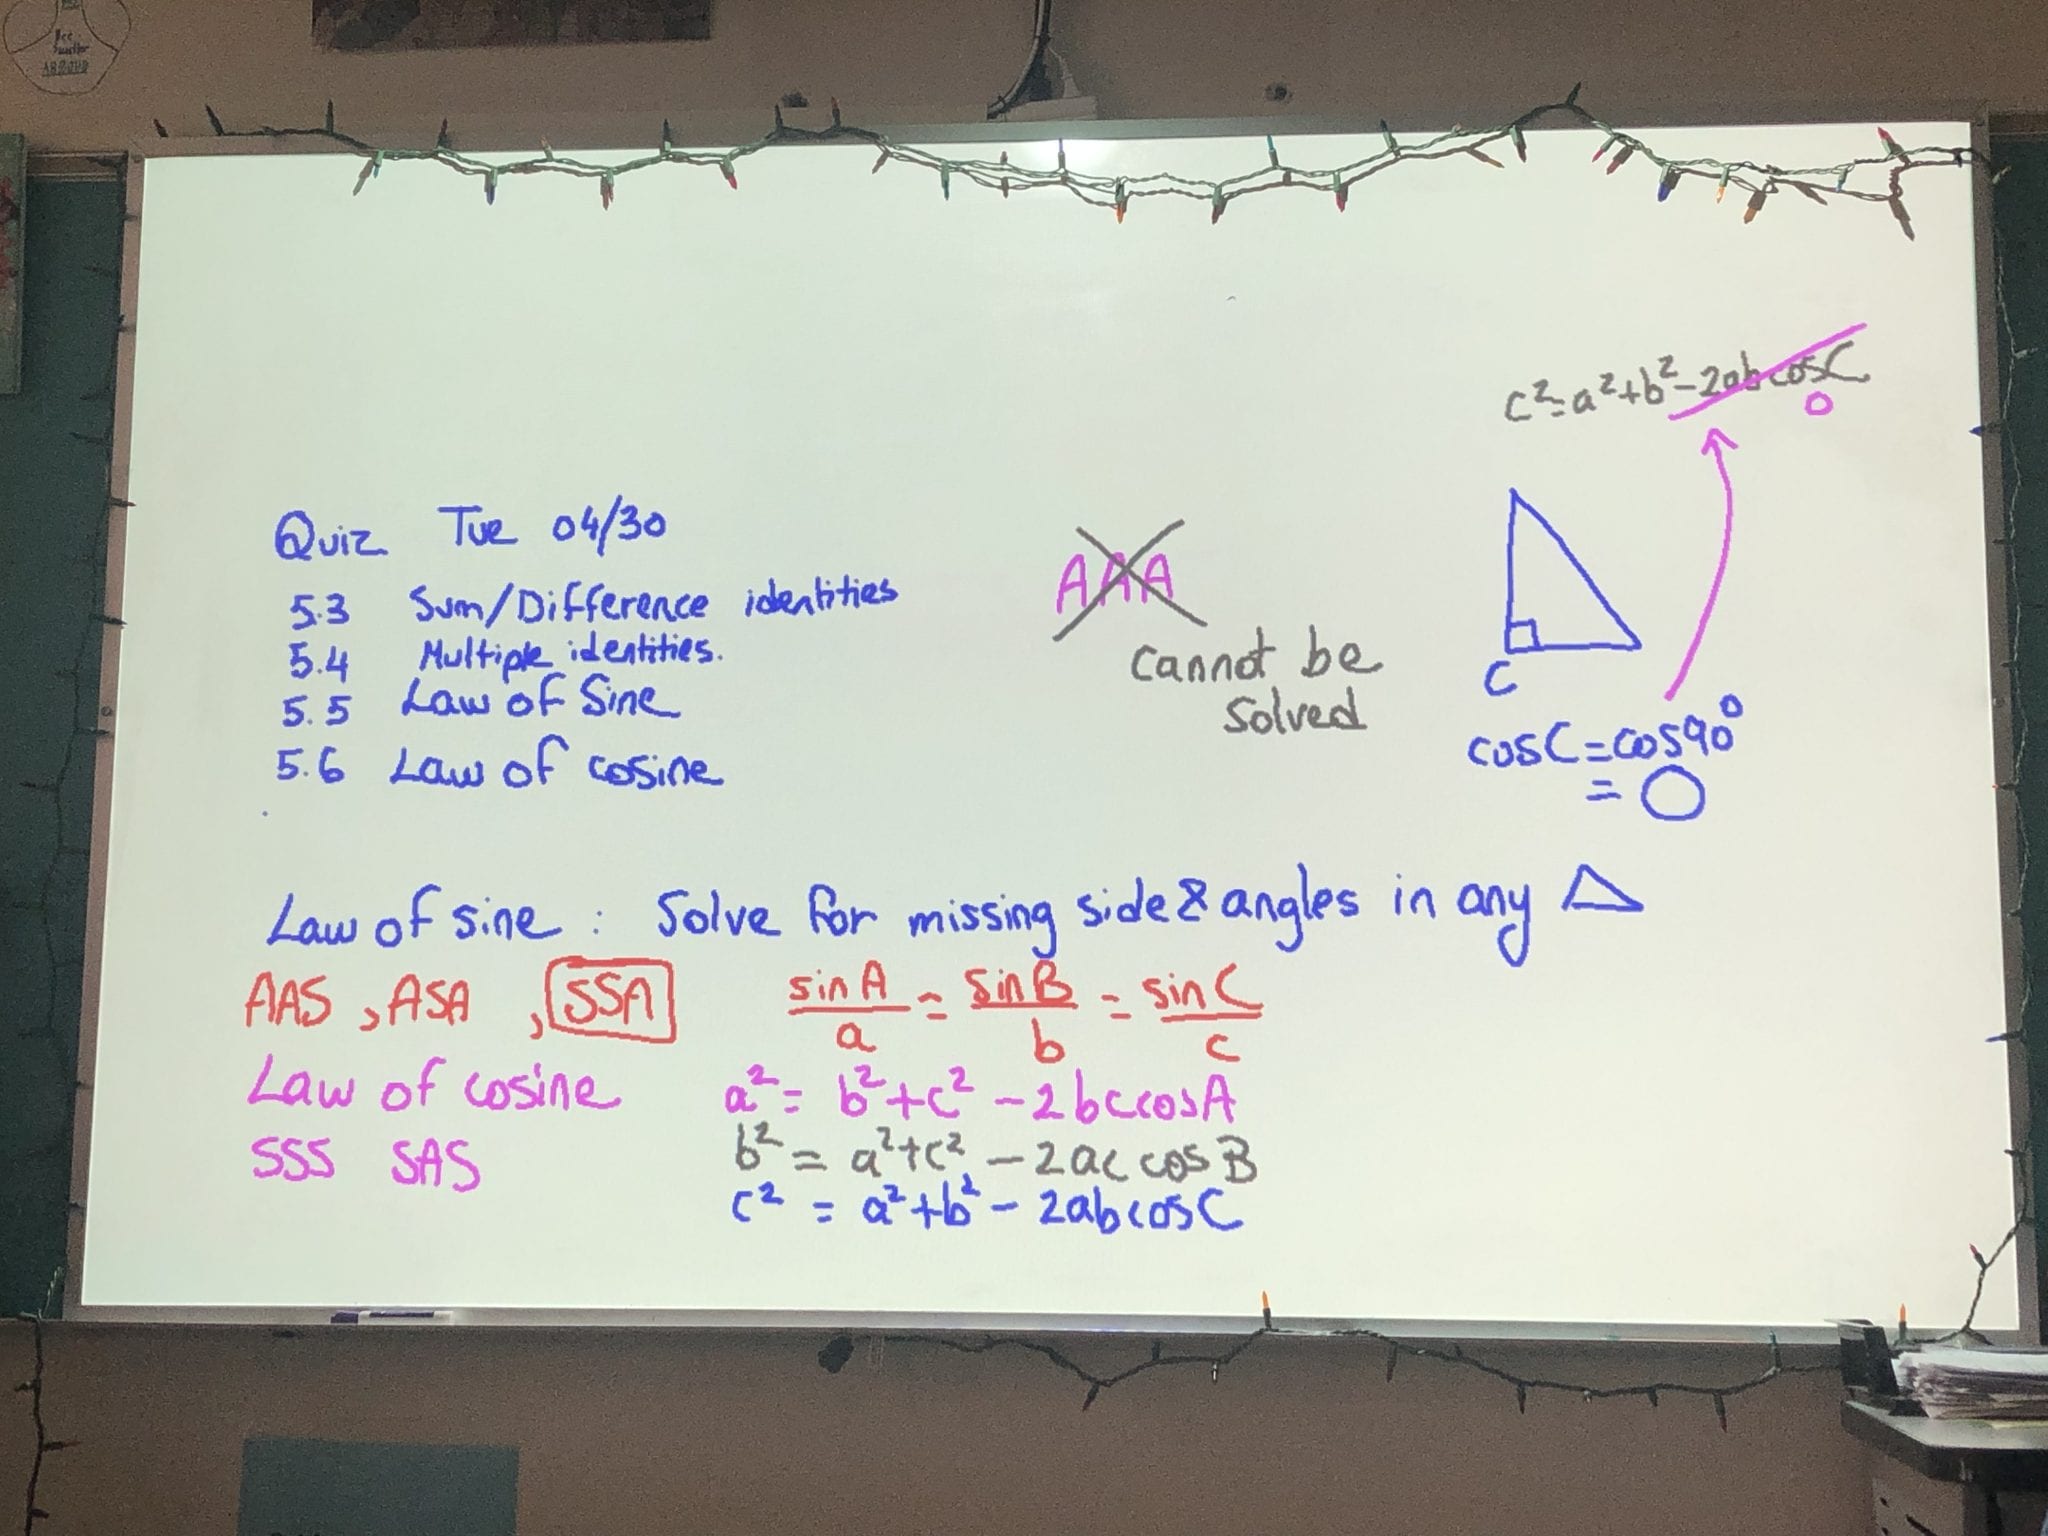 ABOUND
c²=a²+b²-2abcosC
0
Quiz Tue 04/30
5.3 Sum/Difference identities
5.4 Multiple identities.
5.5 Law of Sine
5.6 Law of cosine
AAA
cannot be
solved
C
cosC=cos90°
= 0
Law of sine : Solve for missing side & angles in any △
AAS , ASA , SSA
sin A / a = sin B / b = sin C / c
Law of cosine a² = b²+c² - 2bccosA
SSS SAS b² = a²+c² - 2ac cosB
c² = a²+b² - 2abcosC